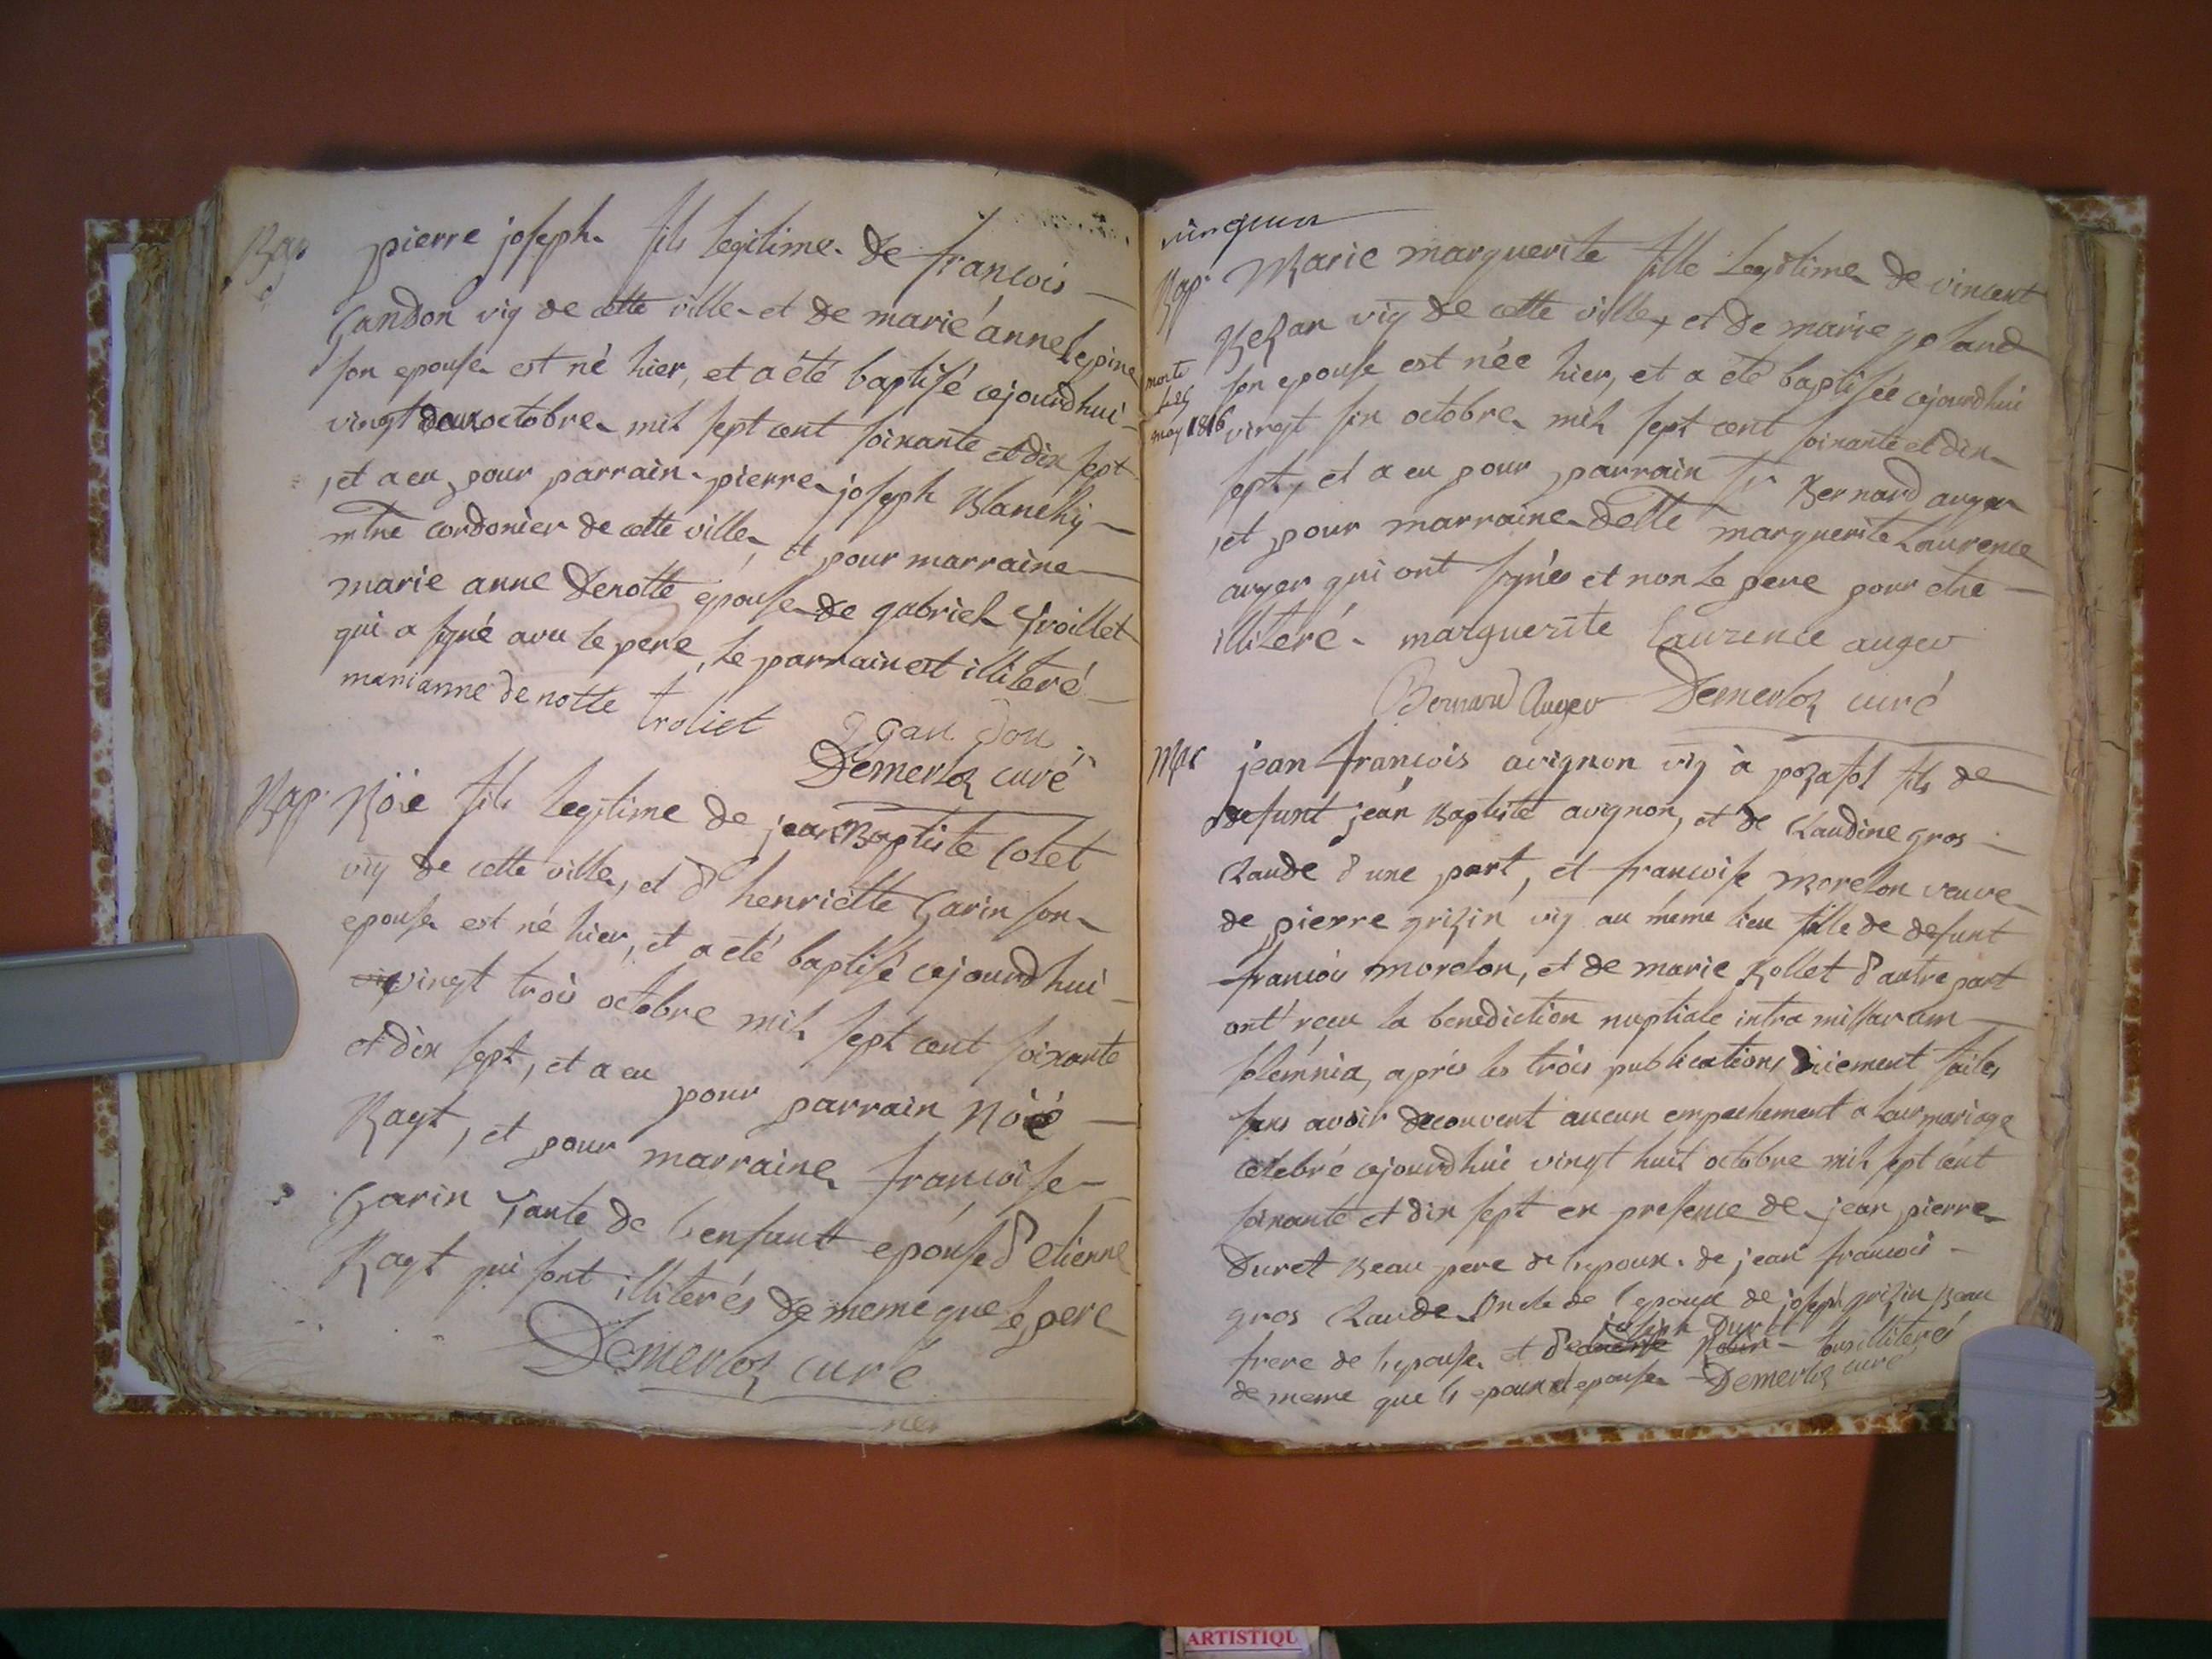 Bap
pierre joseph fils legitime de francois
Gandon vig de cette ville et de marie anne Lepine
son epouse est né hier, et a été baptisé cejourdhui
vingt deux octobre mil sept cent soixante et dix sept
, et a eu pour parrain pierre joseph Blanchy
mtre cordonier de cette ville, et pour marraine
marie anne Denotte epouse de gabriel Troillet
qui a signé avec le pere, le parrain est illiteré
marianne de notte troliet
gan don
Demerloz curé
Bap.
Nöe fils legitime de jean Baptiste Colet
vig de cette ville, et d'henriette Garin son
épouse est né hier, et a été baptisé cejourdhui
vingt trois octobre mil sept cent soixante
et dix sept, et a eu pour parrain nöé
Ragt, et pour marraine francoise
Garin Tante de l'enfant epouse d'etienne
Ragt qui sont illiterés de meme que le pere
Demerloz curé
vingeun
Bap.
Marie marguerite fille legitime de vincent
ReZan vig de cette ville, et de marie goland
morte
le 25
may 1816
son epouse est née hier, et a été baptisée cejourdhui
vingt six octobre mil sept cent soixante et dix
sept, et a eu pour parrain Sr Bernard auger
, et pour marraine delle marguerite Laurence
auger qui ont signés et non le pere pour etre
illiteré. marguerite laurence auger
Bernard Auger Demerloz curé
Mar
jean francois avignon vig à poZafol fils de
defunt jean Baptiste avignon, et de Claudine gros
Claude d'une part, et francoise Morelon veuve
de pierre griZin vig au meme lieu fille de defunt
francois morelon, et de marie Rollet d'autre part
ont reçu la benediction nuptiale intra missarum
solemnia, aprés les trois publications düement faites
sans avoir decouvert aucun empechement a leur mariage
célebré cejourdhui vingt huit octobre mil sept cent
soixante et dix sept en presence de jean pierre
Duret Beau pere de l'epoux. de jean francois
gros Claude Oncle de l'epoux de joseph griZin Beau
joseph Duret
frere de l'epouse et d' tous illiterés
de meme que les epoux et epouse Demerloz curé
ARTISTIQU